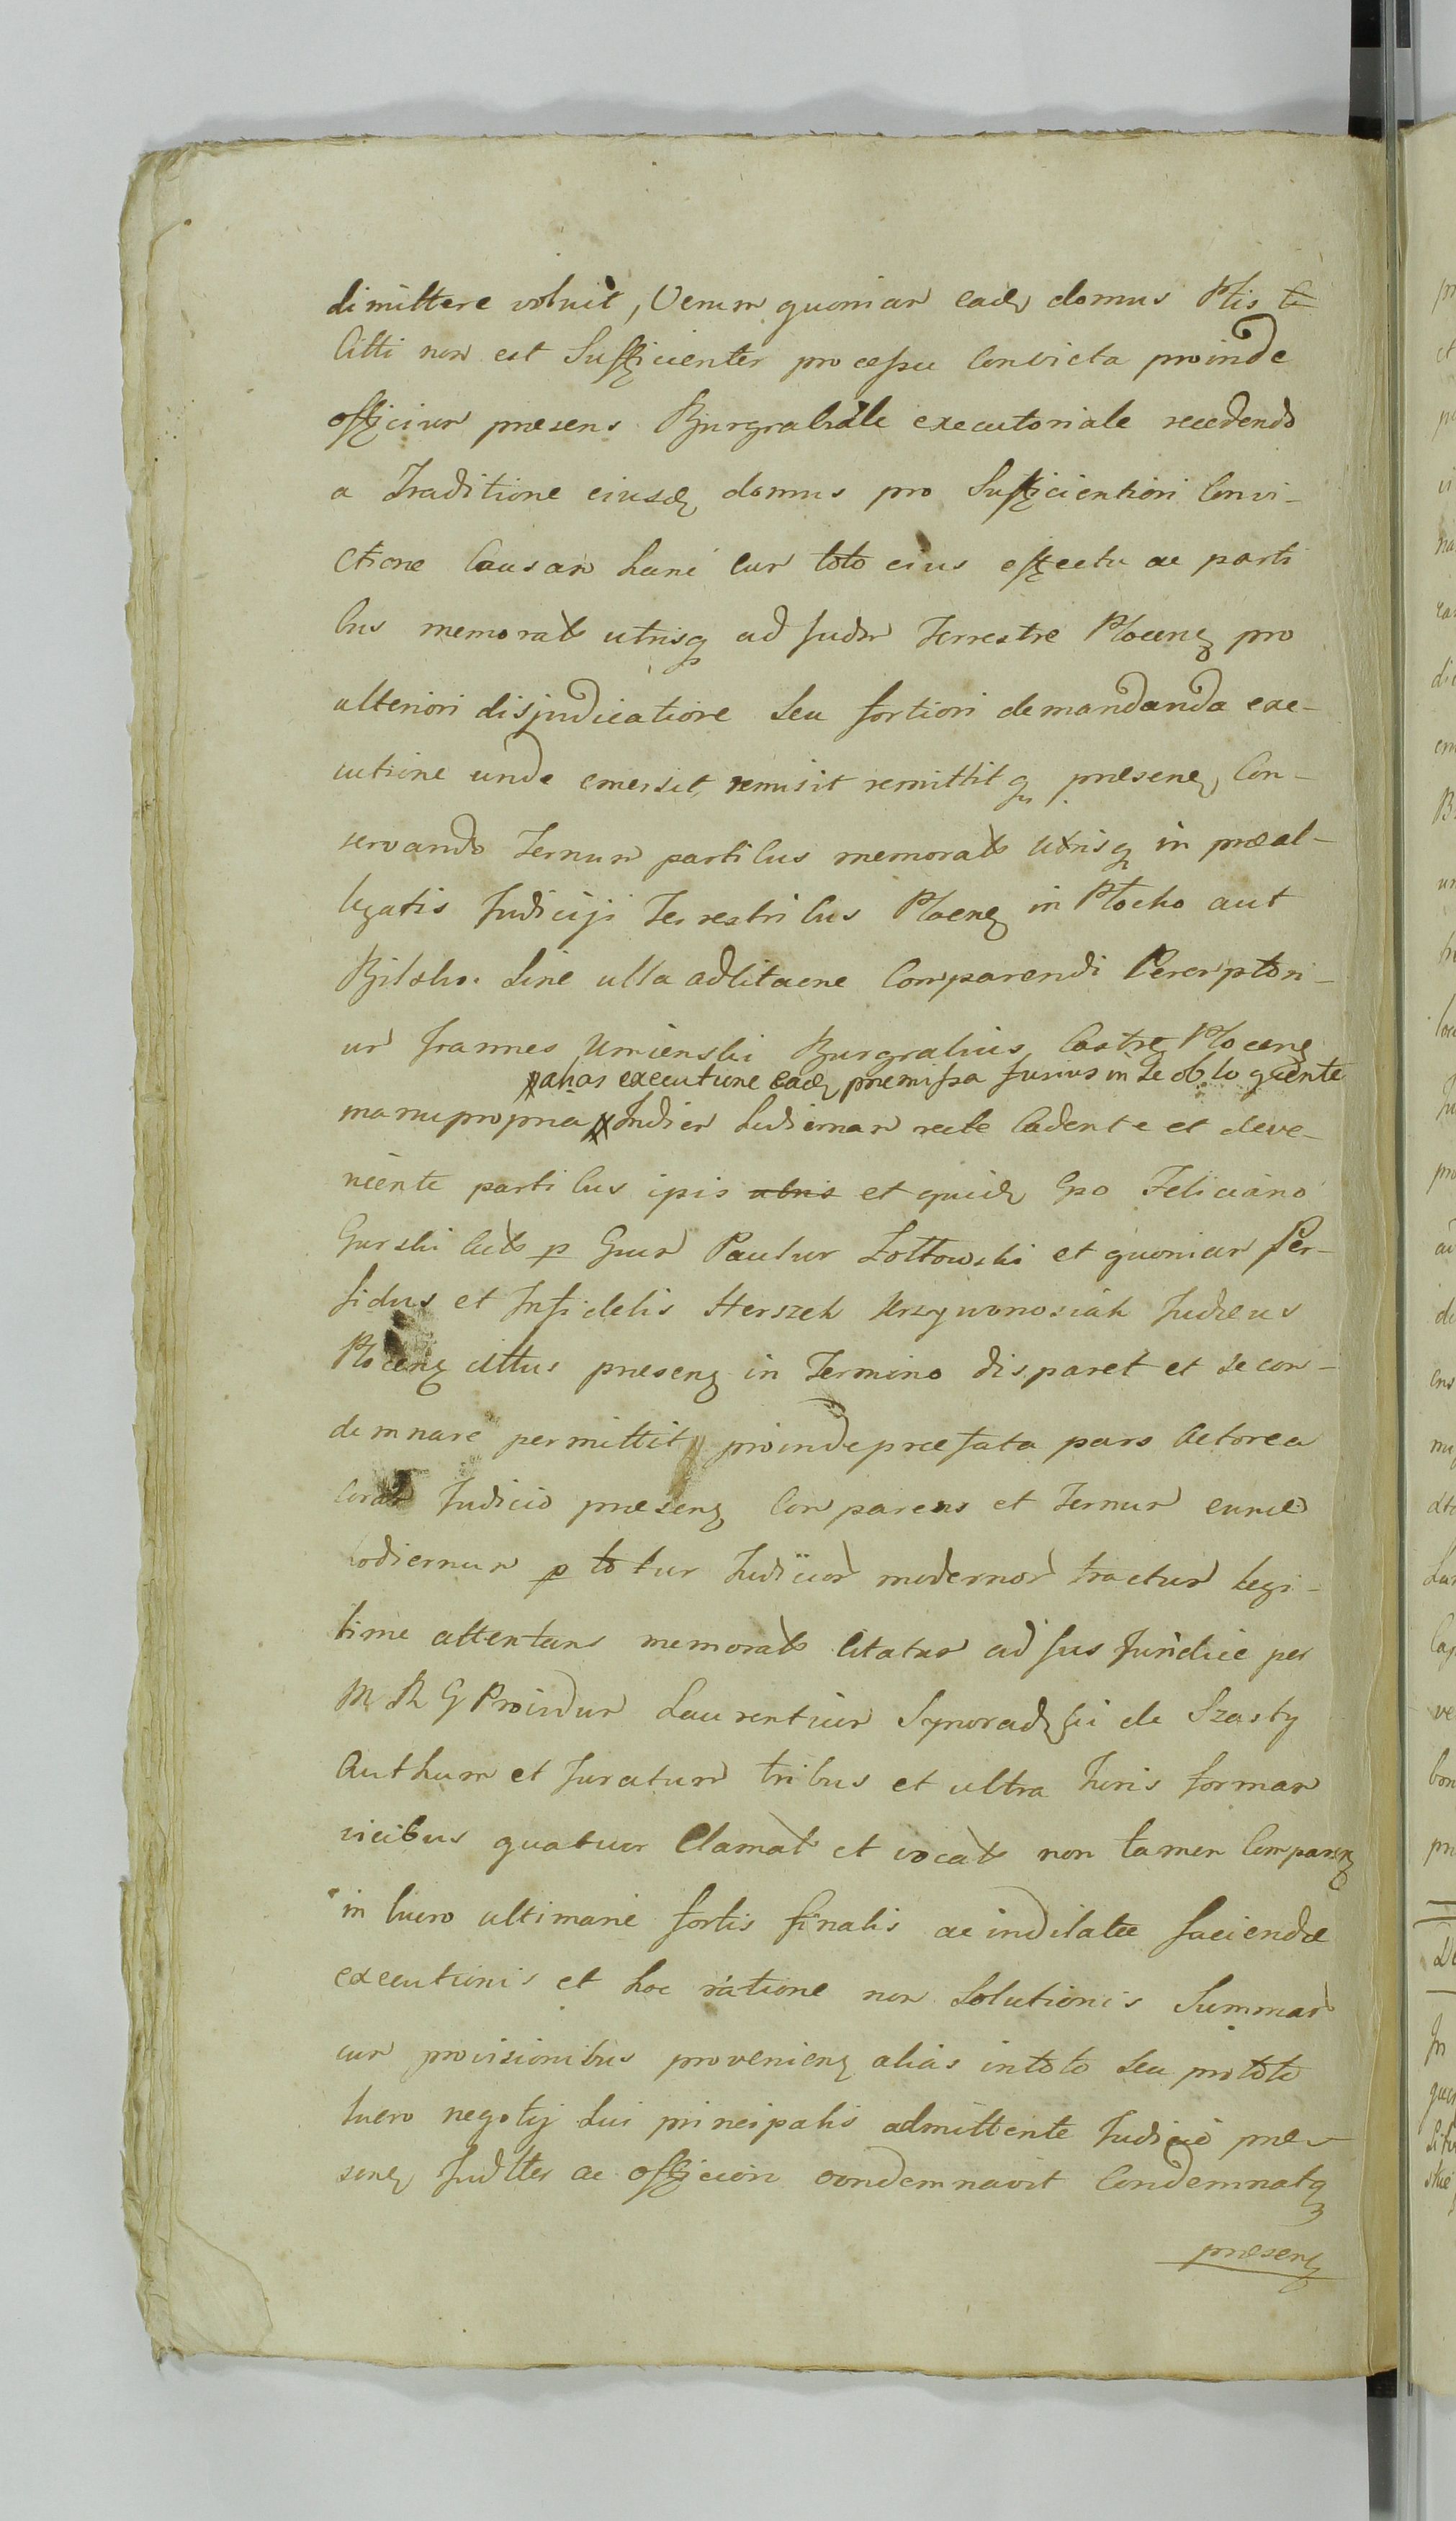 dimittere voluit, Verum quoniam eadę domus Ptis
Citti non est Sufficienter processu Convicta proinde
officium præsens Burgrabiale executoriale recedendo
a Traditione eiusdę domus pro Sufficientiori Convi-
ctione Causam hanc cum toto eius effectu ac parti
bus memorats utrisq ad Judm Terrestre Plocenę pro
ulteriori disjudicatione seu fortiori demandanda exe-
cutione unde emersit, remisit remittitq præsenę, Con-
servando Ternum partibus memorats utrisq in præal-
legatis Judicijs Terrestribus Plocenę in Płocko aut
Bilsko. Sine ulla adcitaōne Comparendi Peremptori-
um Joannes Umienski Burgrabius Castrę Plocenę
alias executione eadę præmissa fusius in se obloquente
manupropria Indiem hodiernam recte Cadente et deve-
niente partibus ipsis utris et quidę Gso Feliciano
Gurski Acts p Gsum Paulum Zołtowski et quoniam Per-
fidus et Infidelis Herszek Krzywonosiak Judæus
Plocenę cittus præsenę in Termino disparet et se con-
demnare permittit, proinde præfata pars Actorea
Coram Judicio præsenę Comparens et Ternum eund
hodiernum p totum Judiciorm modernorm tractum legi-
time attentans memorats Citatum ad Jus Juridice per
M R G Providum Laurentium Synoradzki de Szasty
Authum et Juratum tribus et ultra Juris formam
vicibus quatuor Clamats et vocats non tamen Comparenę
in lucro ultimariæ fortis finalis ac indilatæ faciendæ
executionis et hoc ratione non Solutionis Summarm
cum provisionibus provenienę alias intoto seu prototo
lucro negotij sui principalis admittente Judicio præ-
senę Judtter ac officiōn condemnavit Condemnatq
præsenę